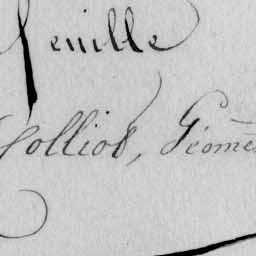 feuille
Colliot, Géomè